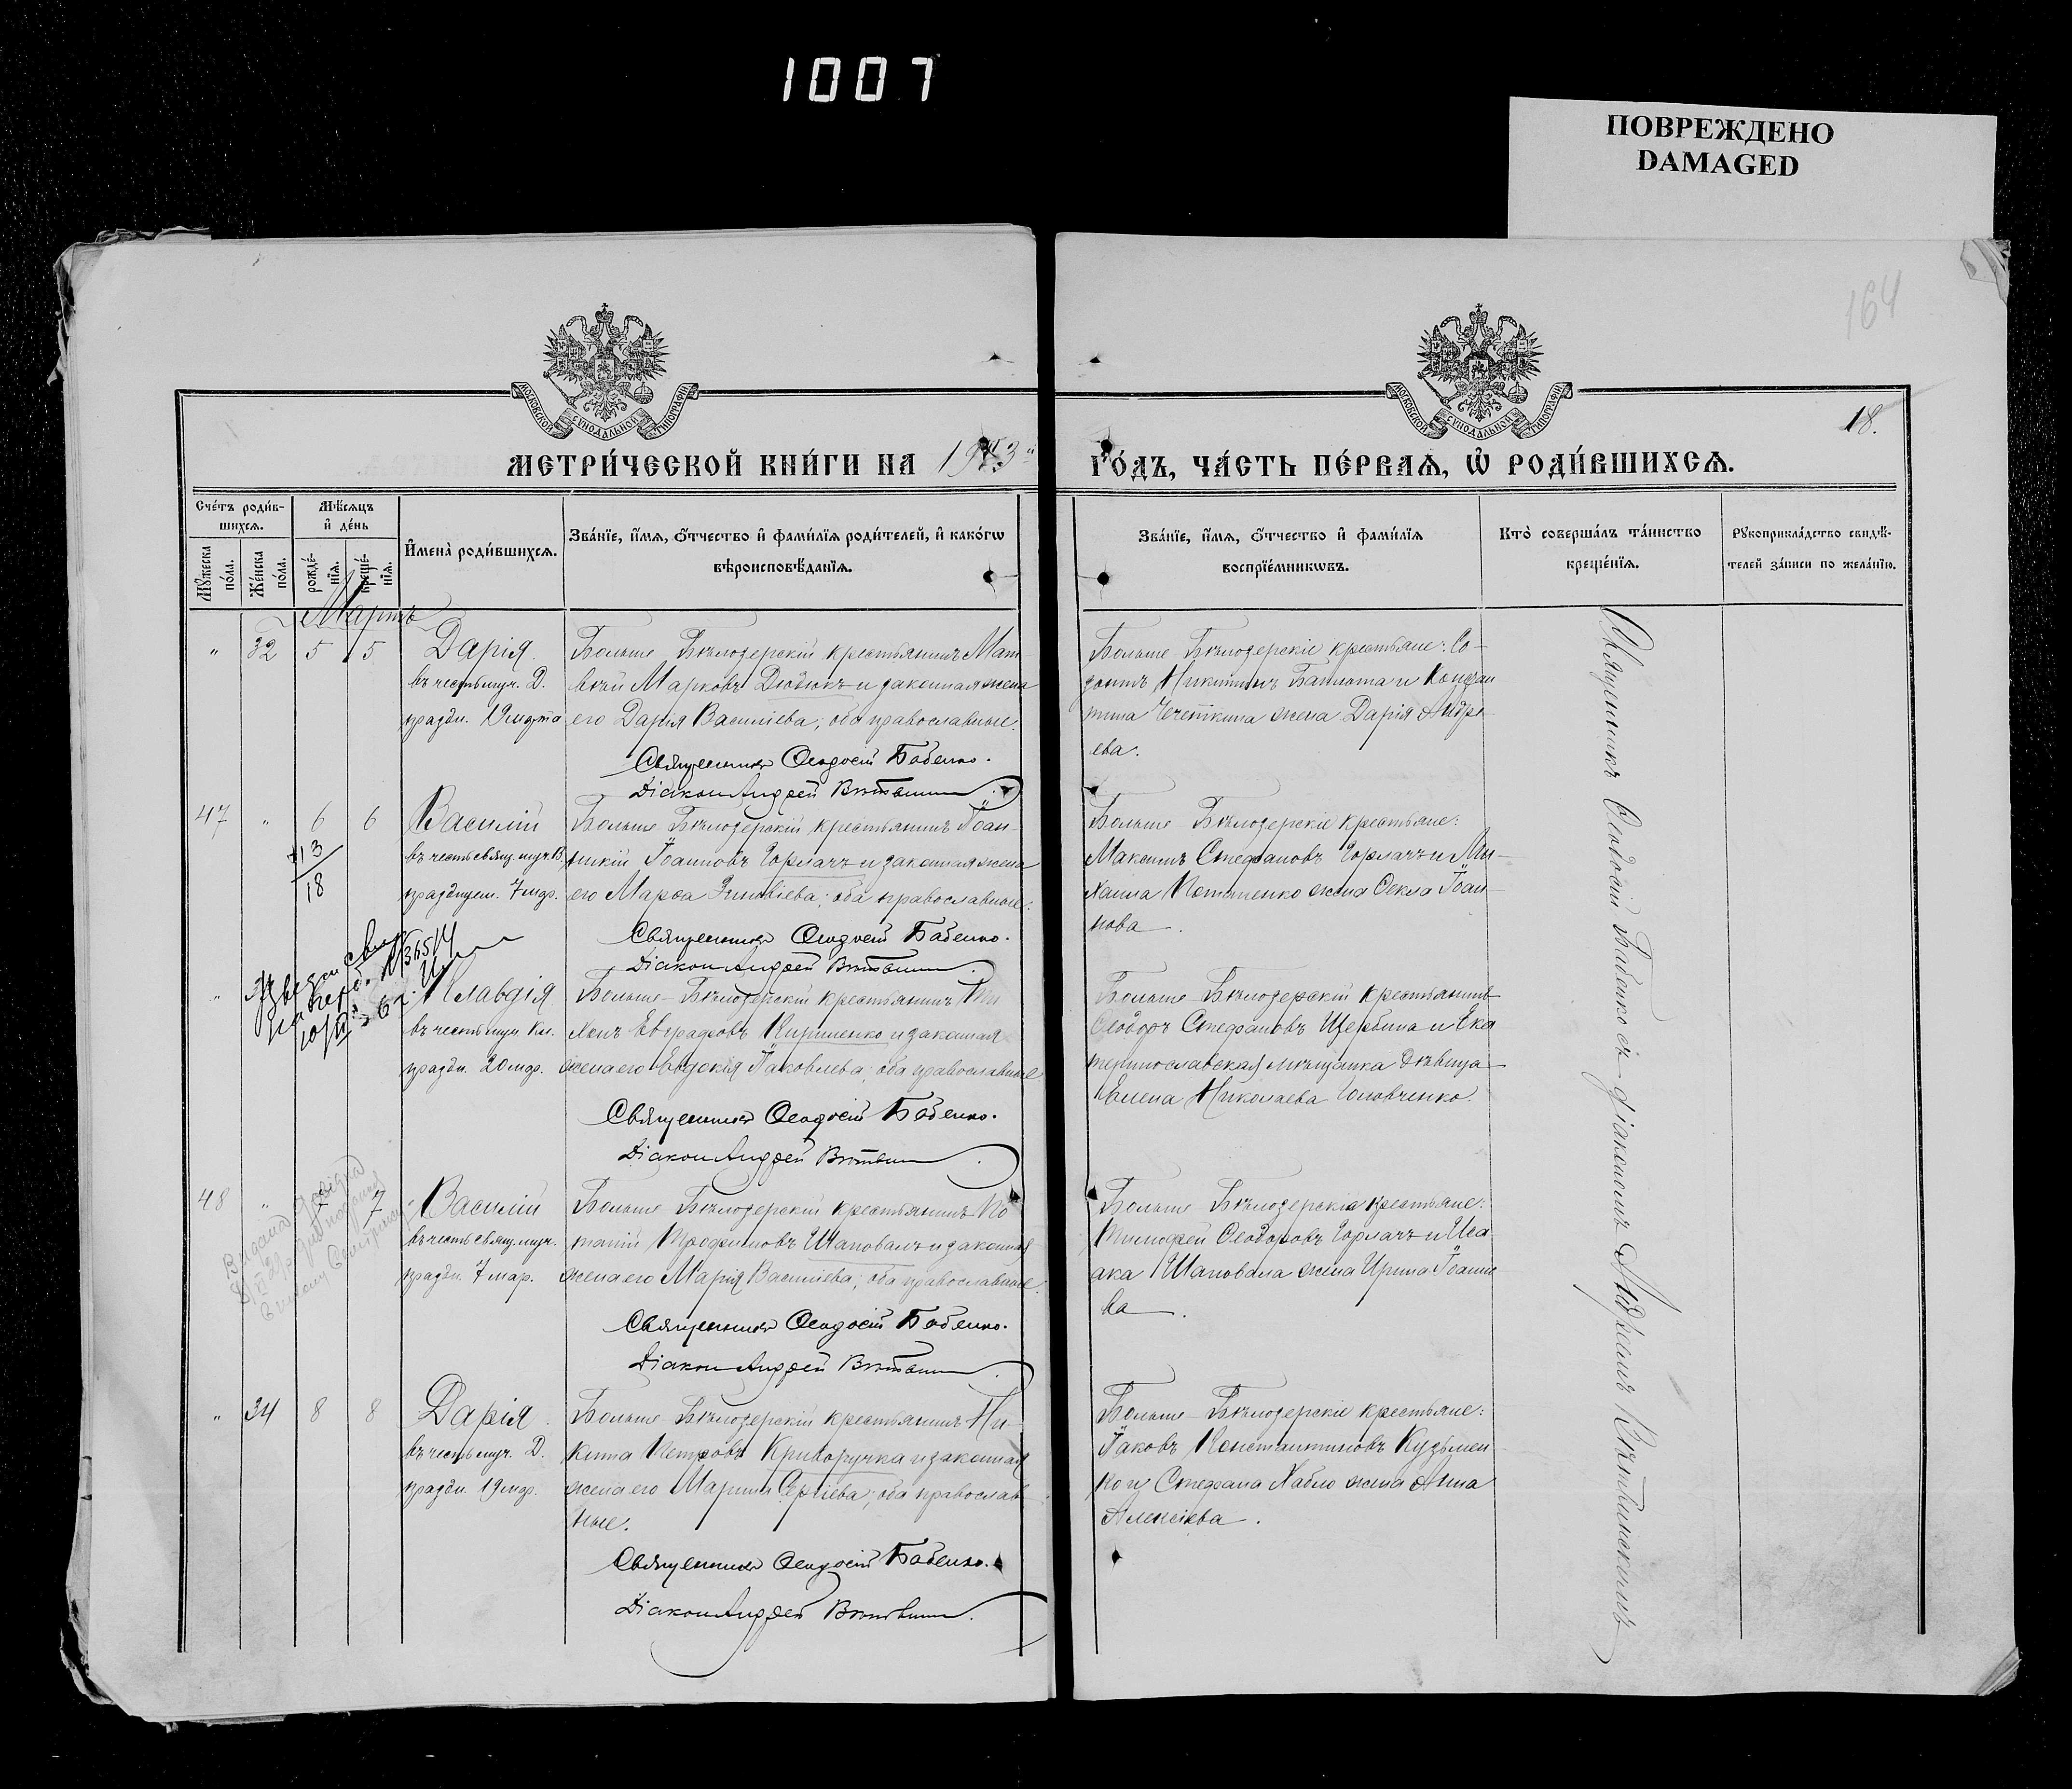 1007
ПОВРЕЖДЕНО
DAMAGED
164
18.
МОСКОВСКОЙ СУНОДАЛЬНОЙ ТИПОГРАФІИ
МОСКОВСКОЙ СУНОДАЛЬНОЙ ТИПОГРАФІИ
МЕТРИ́ЧЕСКОЙ КНИ́ГИ НА 1913
ГО́ДЪ, ЧА́СТЬ ПЕ́РВАѦ, Ѡ҆ РОДИ́ВШИХСѦ.
Сче́тъ роди́в-
шихсѧ.
Мѣ́сѧцъ
и҆ де́нь
Мꙋ́жеска по́ла.
Же́нска по́ла.
рожде́-нїѧ.
креще́-нїѧ.
И҆мена̀ роди́вшихсѧ.
Зва́нїе, и҆́мѧ, ѻ҆́тчество и҆ фами́лїѧ роди́телей, и҆ како́гѡ
вѣроисповѣ́данїѧ.
Зва́нїе, и҆́мѧ, ѻ҆́тчество и҆ фами́лїѧ
воспрїе́мникѡвъ.
Кто̀ соверша́лъ та́инство
креще́нїѧ.
Рꙋкоприкла́дство свидѣ́-
телей за́писи по жела́нїю.
Мартъ
" 32 5 5 Дарія
въ честь муч. Д.
праздн. 19 марта
Больше Бѣлозерскій крестьянинъ Мат-
вѣй Марковъ Дюдюкъ и законная жена
его Дарія Василіева, оба православные.
Священникъ Ѳеодосій Бабенко.
Діаконъ Андрей
Больше Бѣлозерскіе крестьяне: Со-
зонтъ Никитинъ и
жена Дарія Андре-
ева.
47 " 6 6 Василій
въ честь свящ. муч. В.
празднуем. 7 мар.
13
18
Больше Бѣлозерскій крестьянинъ Іоан-
никій Іоанновъ Горлачъ и законная жена
его Марѳа Зиновіева; оба православные.
Священникъ Ѳеодосій Бабенко.
Діаконъ Андрей
Больше Бѣлозерскіе крестьяне:
Максимъ Стефановъ Горлачъ и Ми-
хаила Потапенко жена Ѳекла Іоан-
нова.
" Клавдія
въ честь муч. Кл.
праздн. 20 мар.
Больше-Бѣлозерскій крестьянинъ Ти-
хонъ Евграфовъ Кириленко и законная
жена его Евдокія Іаковлева; оба православные.
Священникъ Ѳеодосій Бабенко.
Діаконъ Андрей
Больше Бѣлозерскій крестьянинъ
Ѳеодоръ Стефановъ Щербина и Ека-
теринославская мѣщанка дѣвица
Елена Николаева Головченко.
48 " 7 7 Василій
въ честь свящ. муч.
праздн. 7 мар.
Больше Бѣлозерскій крестьянинъ По-
тапій Трофимовъ Шаповалъ и законная
жена его Марія Василіева; оба православные.
Священникъ Ѳеодосій Бабенко.
Діаконъ Андрей
Больше Бѣлозерскіе крестьяне:
Тимофей Ѳеодоровъ Горлачъ и Иса-
ака Шаповала жена Ирина Іоанно-
ва.
" 34 8 8 Дарія
въ честь муч. Д.
праздн. 19 мар.
Больше Бѣлозерскій крестьянинъ Ни-
кита Петровъ Криворучка и законная
жена его Марина Сергіева; оба православ-
ные.
Священникъ Ѳеодосій Бабенко.
Діаконъ Андрей
Больше-Бѣлозерскіе крестьяне:
Іаковъ Константиновъ Кузьмен-
ко и Стефана жена Анна
Алексіева.
Священникъ Ѳеодосій Бабенко съ діакономъ Андреемъ